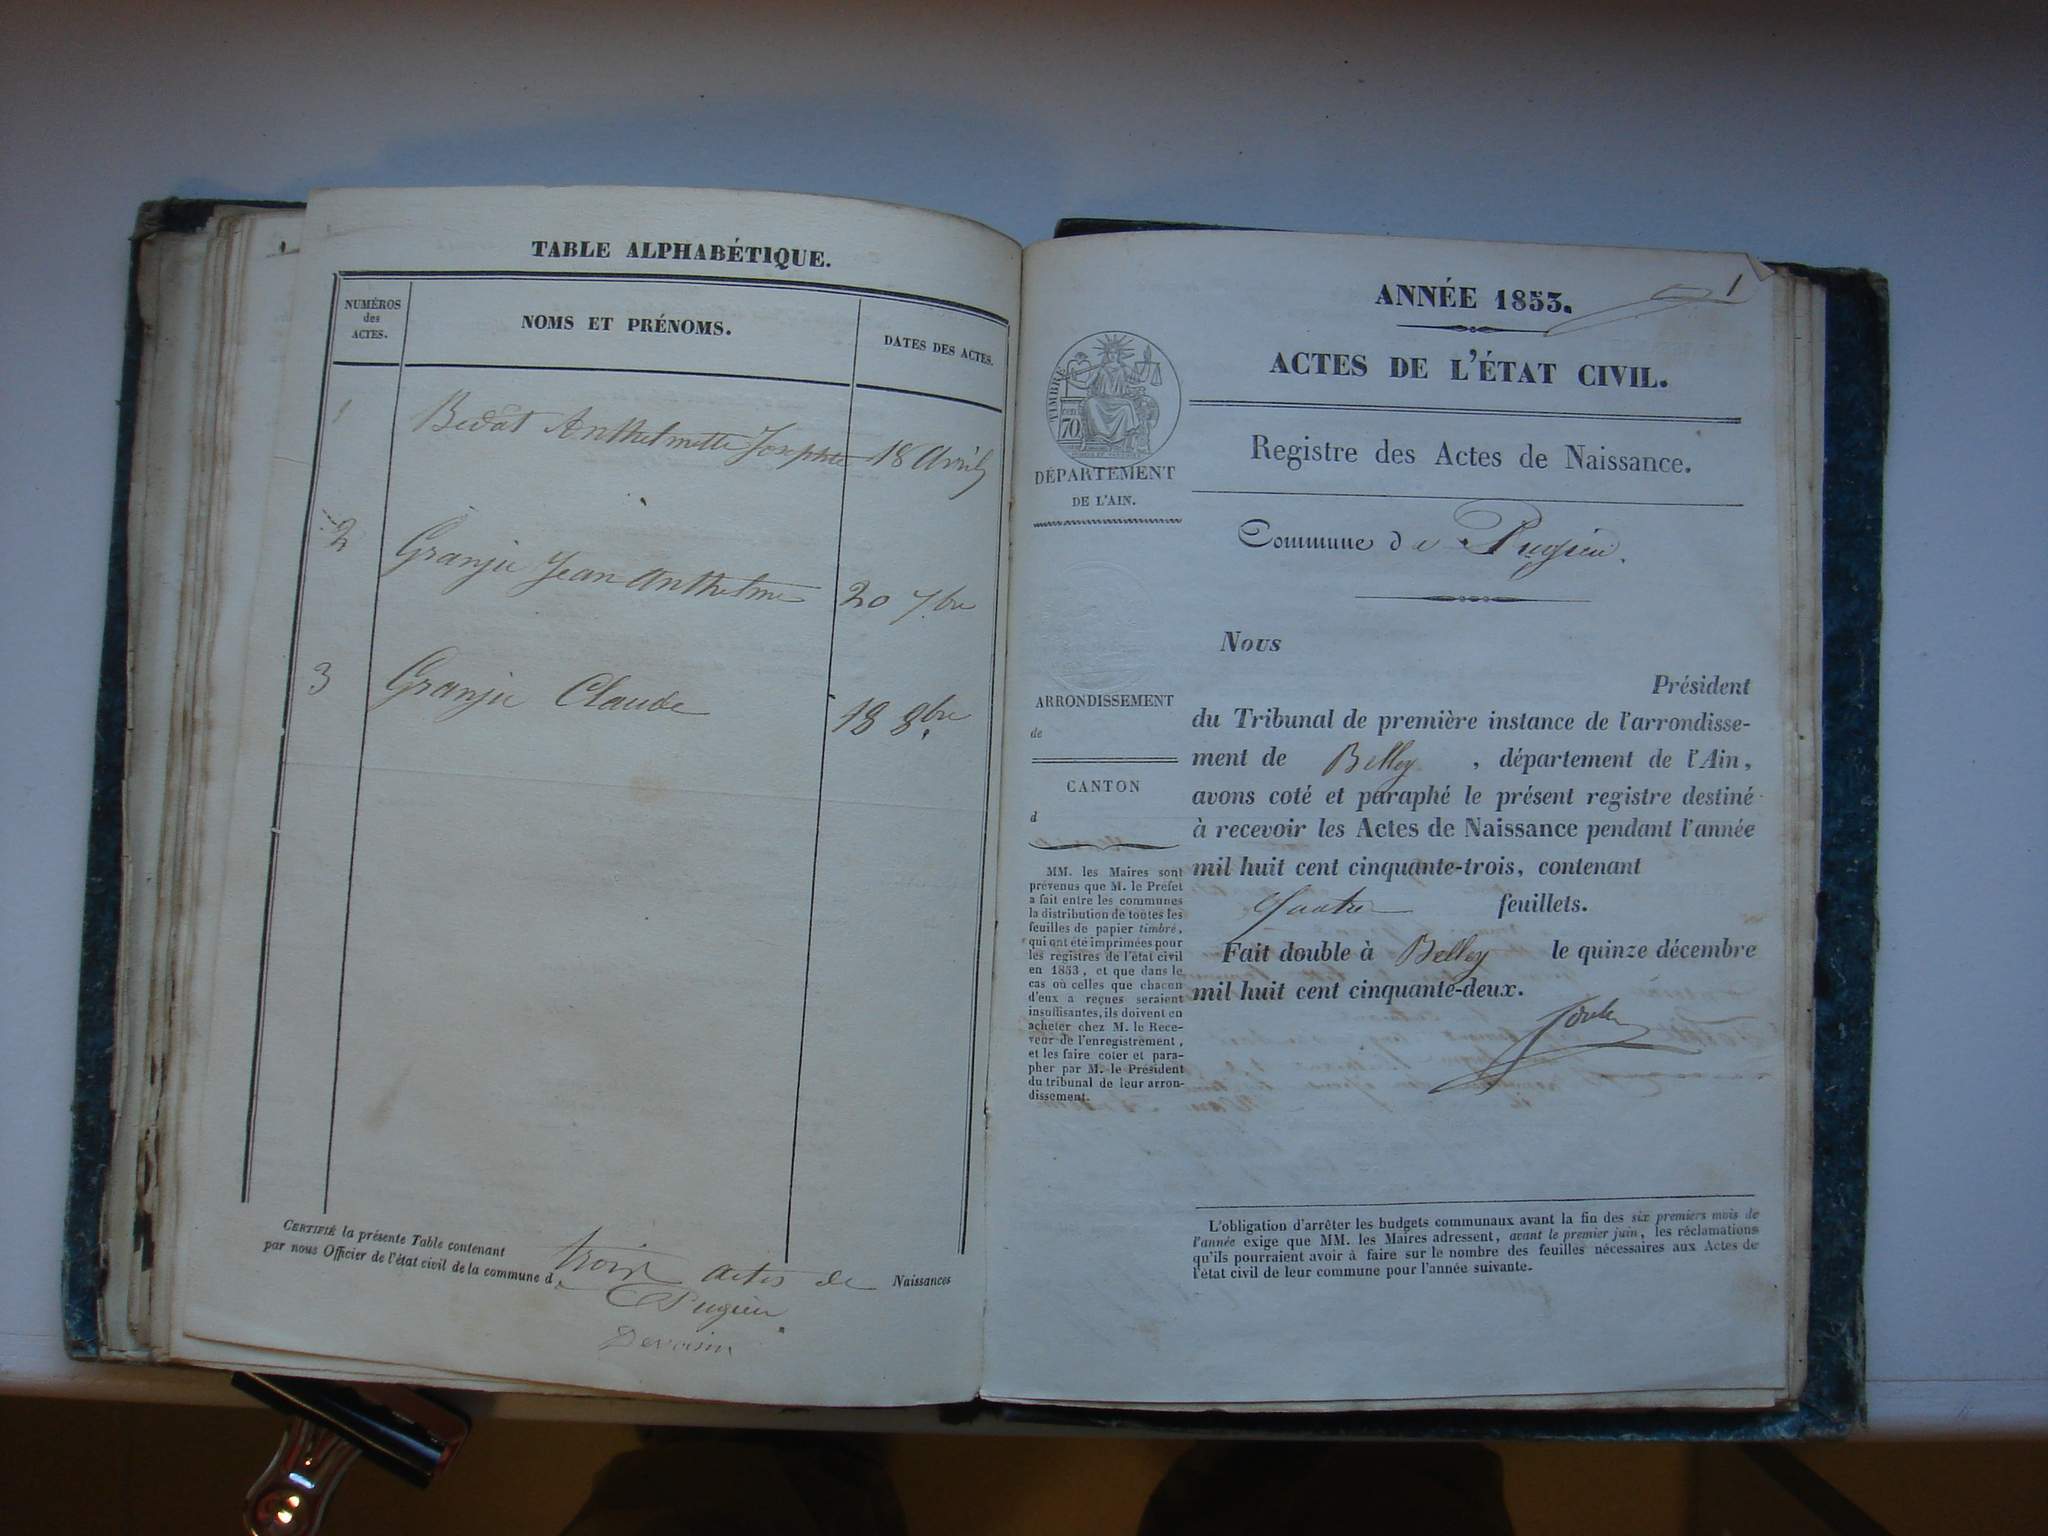 TABLE ALPHABÉTIQUE.
NUMÉROS
des
ACTES.
NOMS ET PRÉNOMS.
DATES DES ACTES.
1 Bedat Anthelmette Josephte 18 Avril
2 Granju Jean Anthelme 20 7bre
3 Granju Claude 18 8bre
CERTIFIÉ la présente Table contenant trois actes de Naissances
par nous Officier de l'état civil de la commune d
Pugieu.
Devoisin
1
ANNÉE 1853.
ACTES DE L'ÉTAT CIVIL.
TIMBRE
70
DÉPARTEMENT
DE L'AIN.
Registre des Actes de Naissance.
Commune de Pugieu.
ARRONDISSEMENT
de
CANTON
d
MM. les Maires sont
prévenus que M. le Préfet
a fait entre les communes
la distribution de toutes les
feuilles de papier timbré,
qui ont été imprimées pour
les registres de l'état civil
en 1853, et que dans le
cas où celles que chacun
d'eux a reçues seraient
insuffisantes, ils doivent en
acheter chez M. le Rece-
veur de l'enregistrement,
et les faire coter et para-
pher par M. le Président
du tribunal de leur arron-
dissement.
Nous
Président
du Tribunal de première instance de l'arrondisse-
ment de Belley, département de l'Ain,
avons coté et paraphé le présent registre destiné
à recevoir les Actes de Naissance pendant l'année
mil huit cent cinquante-trois, contenant
quatre feuillets.
Fait double à Belley le quinze décembre
mil huit cent cinquante-deux.
L'obligation d'arrêter les budgets communaux avant la fin des six premiers mois de
l'année exige que MM. les Maires adressent, avant le premier juin, les réclamations
qu'ils pourraient avoir à faire sur le nombre des feuilles nécessaires aux Actes de
l'état civil de leur commune pour l'année suivante.